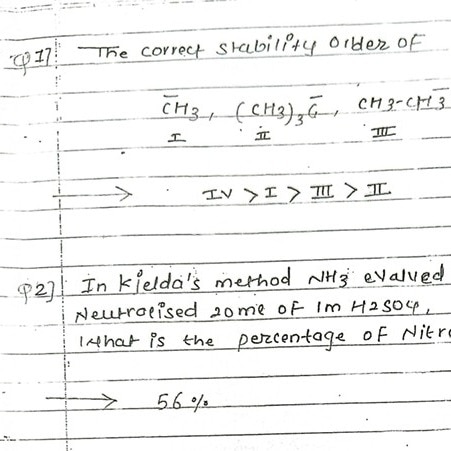 Q 1] The correct stability Order of
C̄H3, (CH3)3 C̄, CH3-CH3̄
I II III
→ IV > I > III > II
Q 2] In Kjelda's method NH3 evalved
Neutrolised 20ml of 1m H2SO4,
What is the percentage of Nitro
→ 56 %